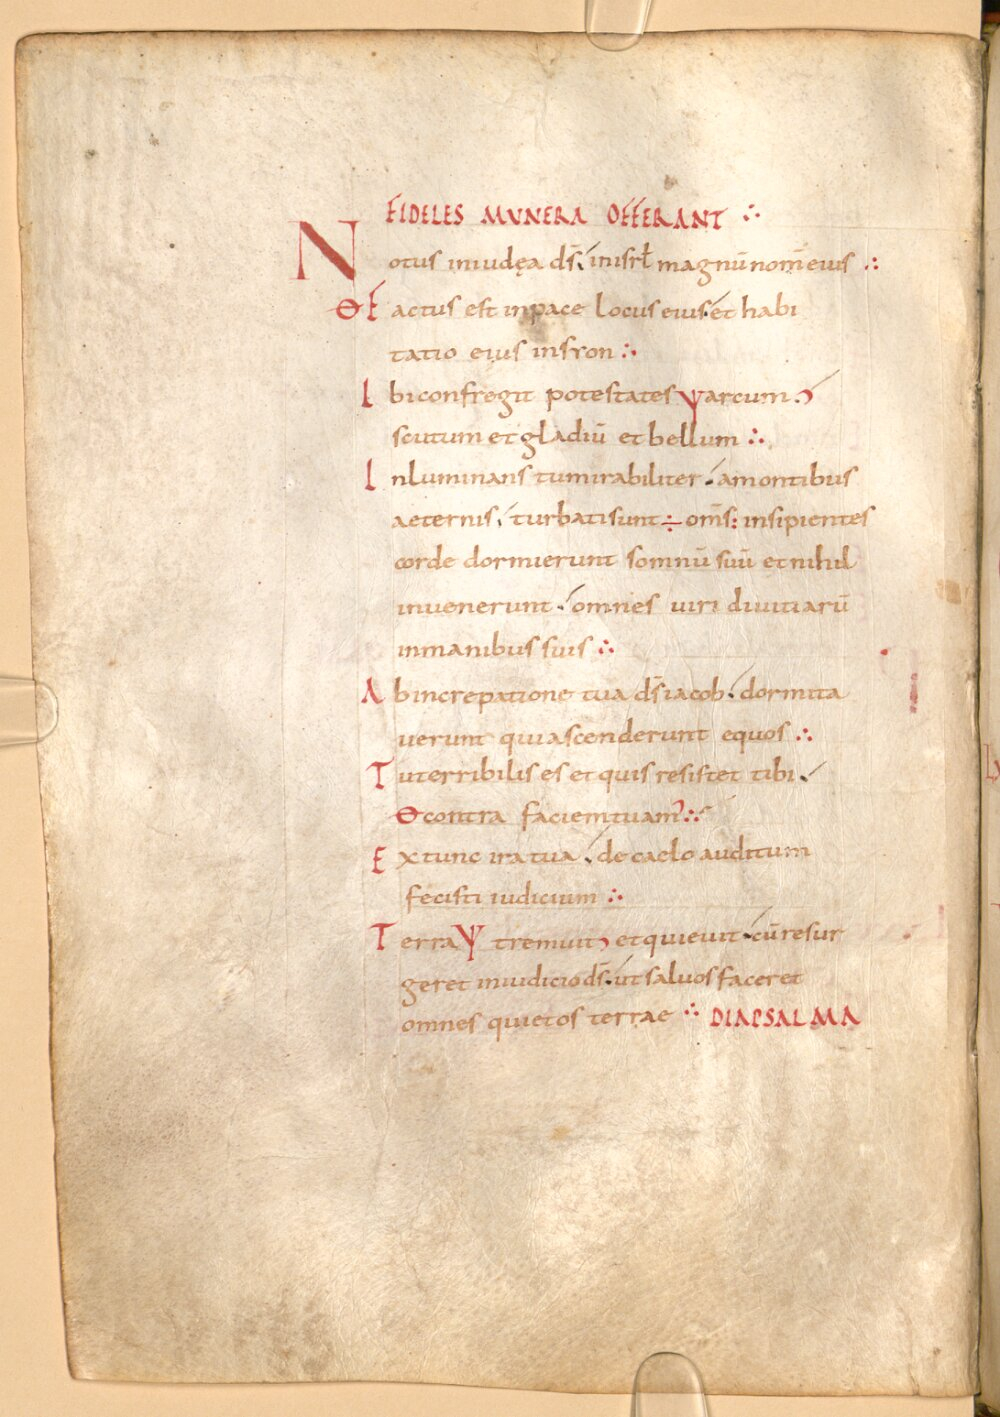 FIDELES MUNERA OFFERANT ∴
Notus iniudęa ds̄. inisrł magnū nom̄ eius ∴
Θ Factus est inpace locus eius. et habi
tatio eius insyon ∴
Ibi confregit potestates ψ arcum.
scutum et gladiū et bellum ∴
Inluminans tumirabiliter. amontibus
aeternis. turbatisunt ÷ om̄s : insipientes
corde dormierunt somnū suū et nihil
invenerunt. omnes uiri diuitiarū
inmanibus suis ∴
Abincrepatione tua ds̄ iacob. dormita
uerunt qui ascenderunt equos ∴
Tu terribilis es et quis resistet tibi.
Θ contra faciem tuam ∴
Ex tunc ira tua. de caelo auditum
fecisti iudicium ∴
Terra ψ tremuit et quieuit. cū resur
geret iniudicio ds̄. ut saluos faceret
omnes quietos terrae ∴ DIAPSALMA